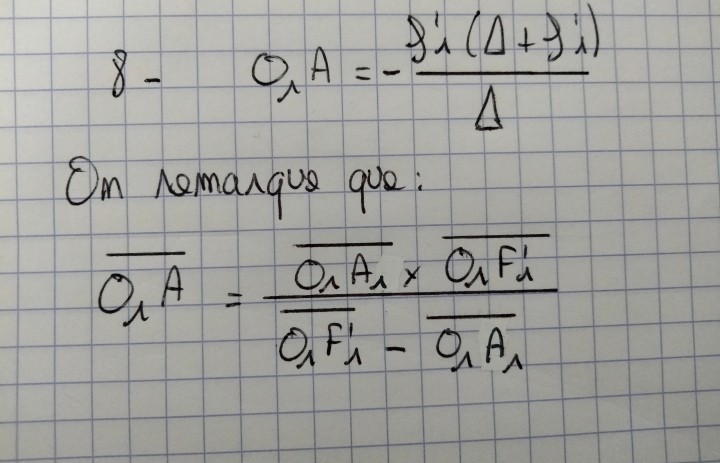 8 - O₁A = - f'₁ (Δ + f'₁) / Δ
On remarque que :
O₁A = O₁A₁ × O₁F'₁ / O₁F'₁ - O₁A₁